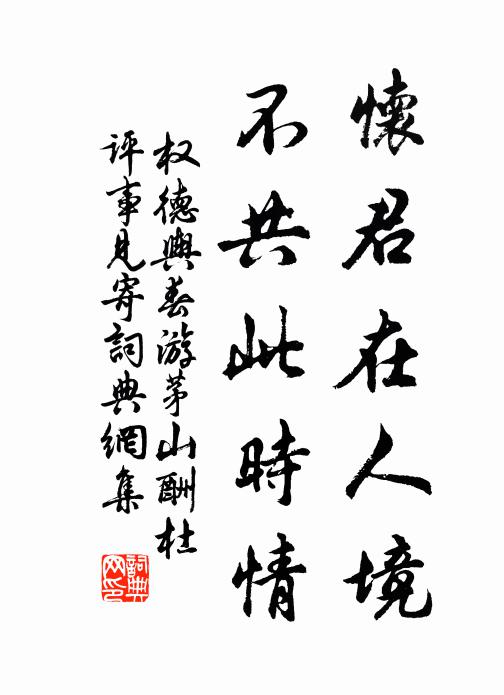 懷君在人境
不共此時情
权德輿春游茅山酬杜
评事見寄詞典網集
詞典
网印